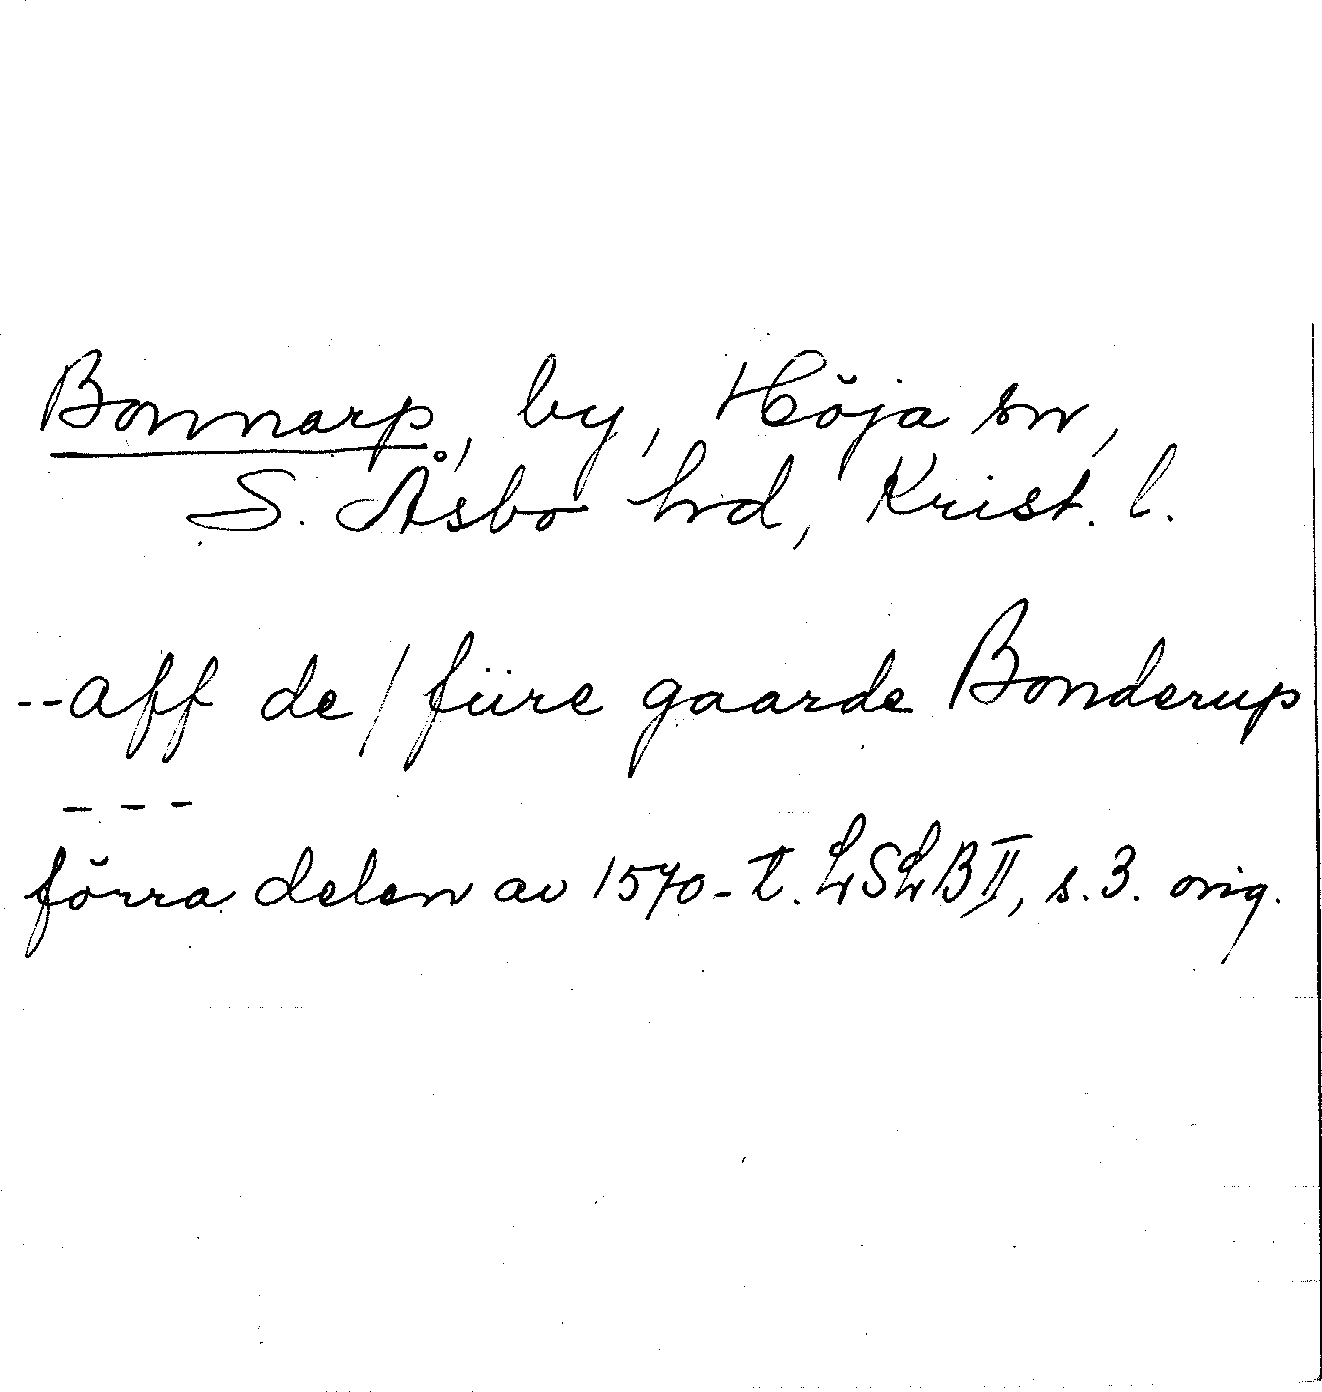 Bonnarp, by, Höja sn,
S. Åsbo hd, Krist. l.
--aff de / füre gaarde Bonderup
---
förra delen av 1570-t. LSLB II, s. 3. orig.